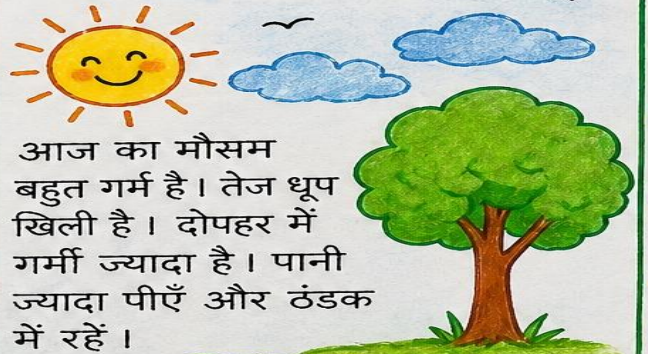 आज का मौसम
बहुत गर्म है। तेज धूप
खिली है। दोपहर में
गर्मी ज्यादा है। पानी
ज्यादा पीएँ और ठंडक
में रहें।